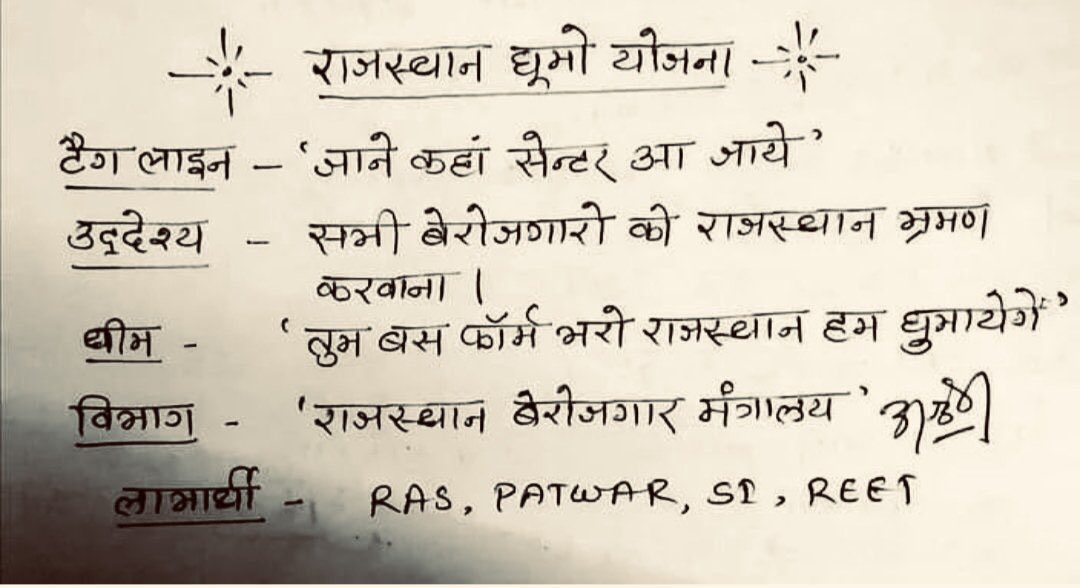 राजस्थान घूमो योजना
टैग लाइन - 'जाने कहां सेन्टर आ जाये'
उद्देश्य - सभी बेरोजगारो को राजस्थान भ्रमण
करवाना।
थीम - 'तुम बस फॉर्म भरो राजस्थान हम घुमायेगें'
विभाग - 'राजस्थान बेरोजगार मंत्रालय'
लाभार्थी - RAS, PATWAR, SI, REET